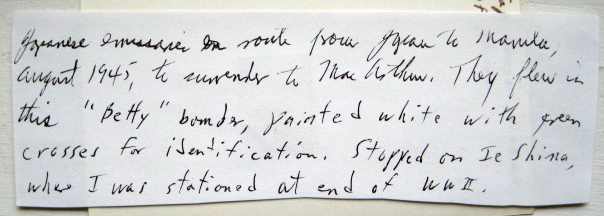 Japanese emissaries en route from Japan to Manila,
August 1945, to surrender to MacArthur. They flew in
this "Betty" bomber, painted white with green
crosses for identification. Stopped on Ie Shima,
where I was stationed at end of WW II.